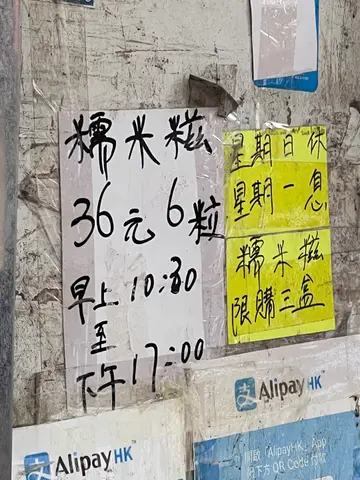 糯米糍
36元6粒
早上10:30
至
下午17:00
星期日休
星期一息
糯米糍
限購三盒
支 AlipayHK
支 AlipayHK
開啟「AlipayHK」App
掃下方 QR Code 付款